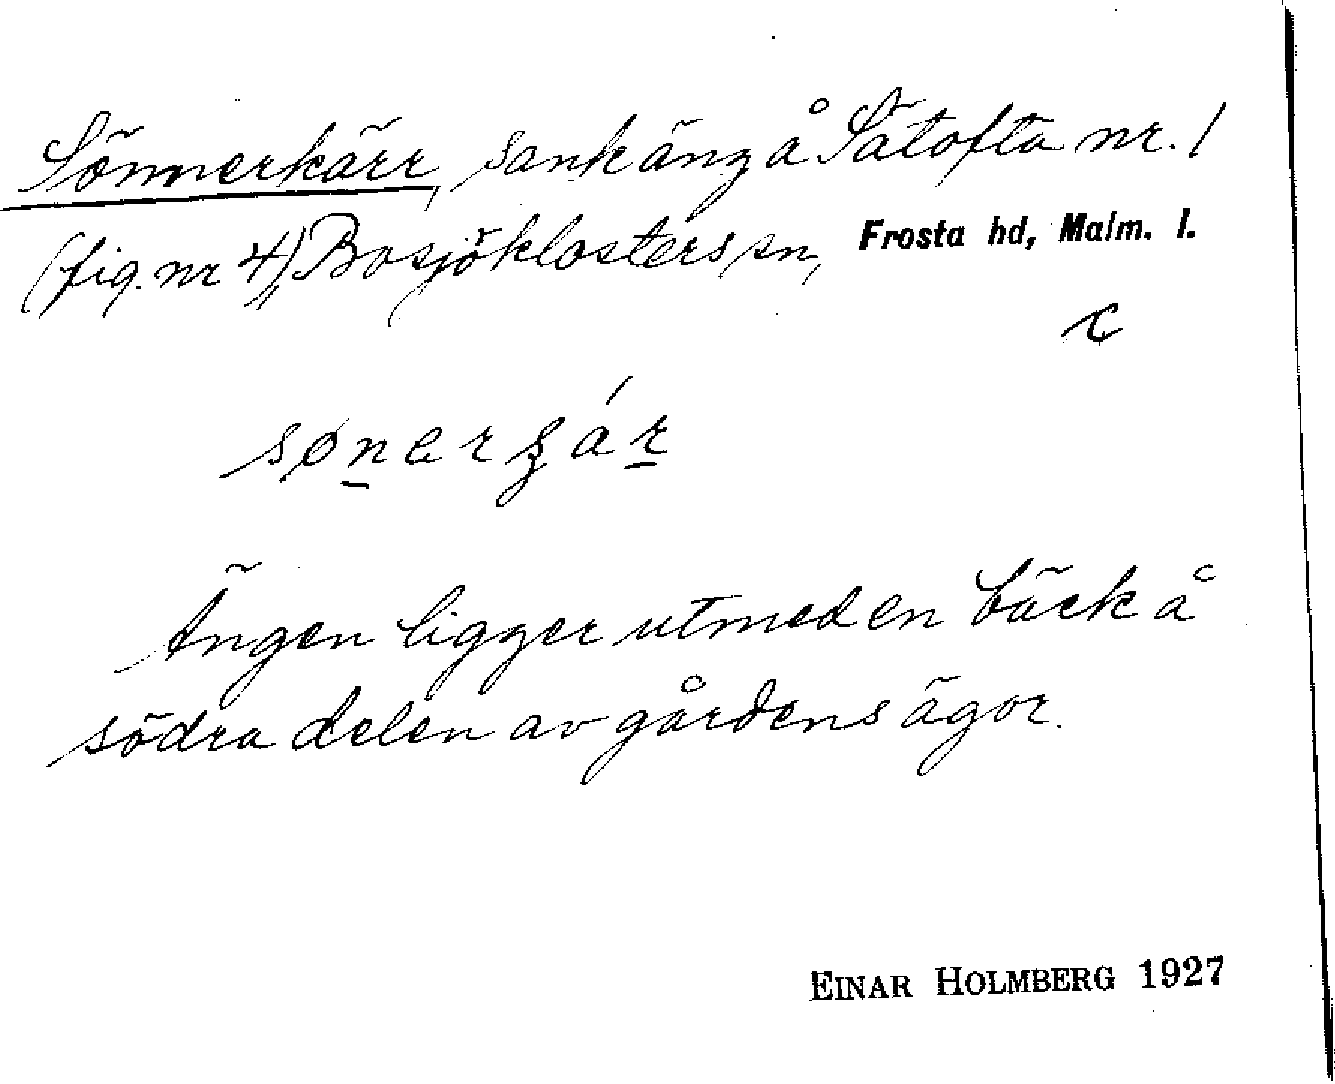 Sönnerkärr, sankäng å Sätofta nr. 1
(fig. nr 4), Bosjöklosters sn, Frosta hd, Malm. l.
c
Ängen ligger utmed en bäck å
södra delen av gårdens ägor.
EINAR HOLMBERG 1927